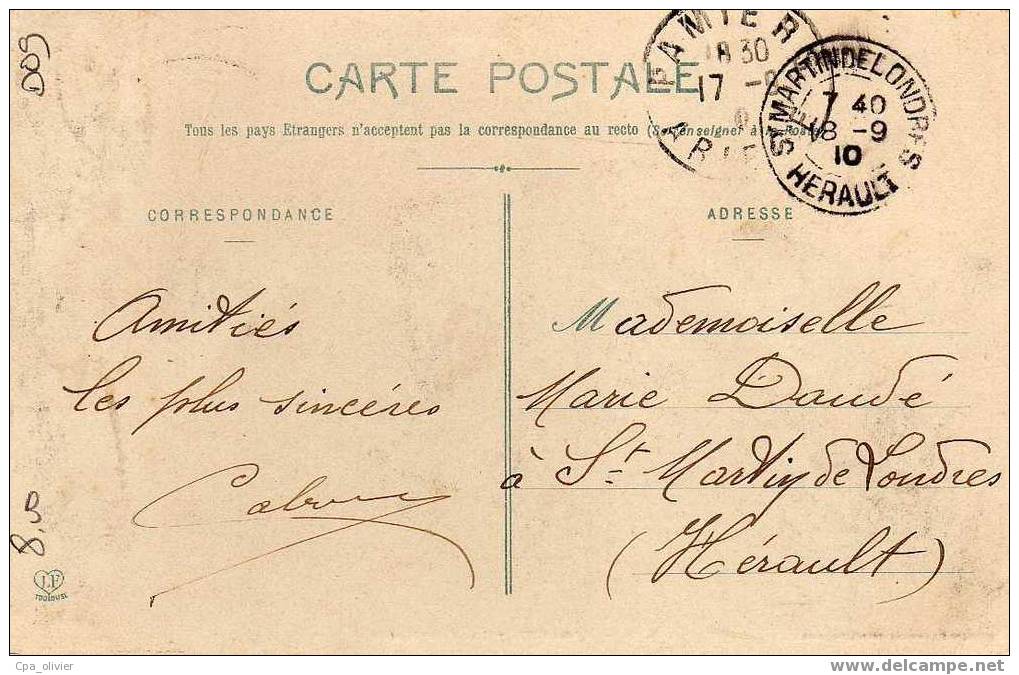 D09
PAMIER
18 30
17
ARIE
ST MARTIN DE LONDRES
7 40
18 - 9
10
HERAULT
CARTE POSTALE
Tous les pays Etrangers n'acceptent pas la correspondance au recto (Se renseigner à la Poste)
CORRESPONDANCE
ADRESSE
Amitiés
les plus sincéres
Mademoiselle
Marie Daudé
à St. Martin de Londres
(Hérault)
LF
TOULOUSE
Cpa_olivier
http://www.delcampe.net